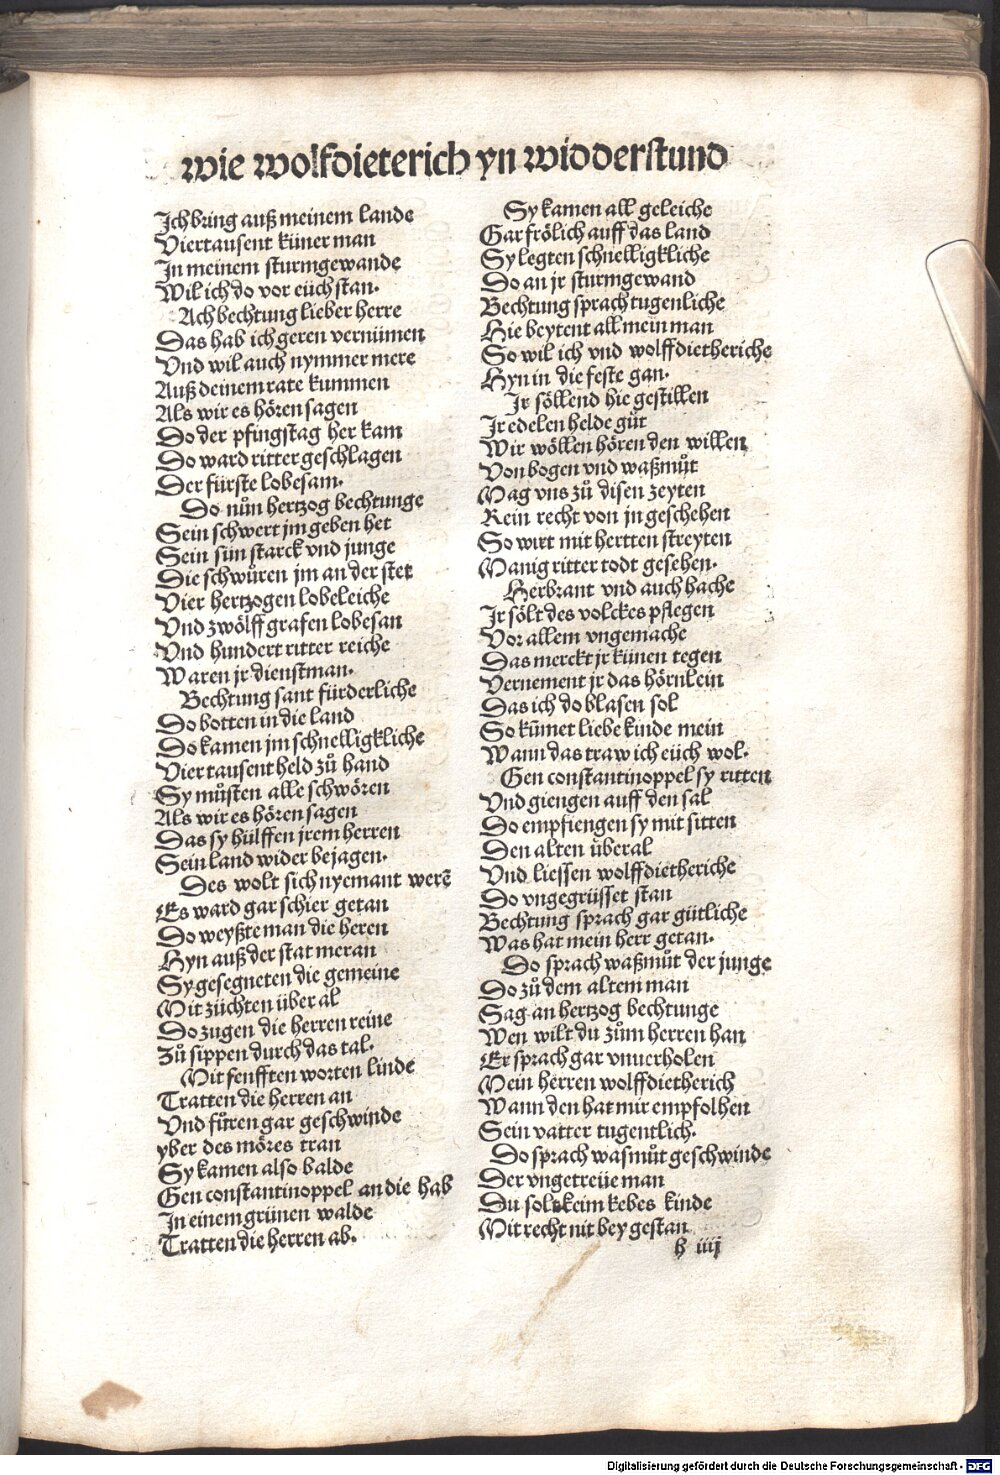 wie wolfdieterich yn widderstund
Ich bring auß meinem lande
Viertausent küner man
In meinem sturmgewande
Wil ich do vor eüch stan.
Ach bechtung lieber herre
Das hab ich geren vernümen
Vnd wil auch nymmer mere
Auß deinem rate kummen
Als wir es hören sagen
Do der pfingstag her kam
Do ward ritter geschlagen
Der fürste lobesam.
Do nůn hertzog bechtunge
Sein schwert jm geben het
Sein sün starck vnd junge
Die schwůren jm an der stet
Vier hertzogen lobeleiche
Vnd zwölff grafen lobesan
Vnd hundert ritter reiche
Waren jr dienstman.
Bechtung sant fürderliche
Do botten in die land
Do kamen jm schnelligkliche
Vier tausent held zů hand
Sy můsten alle schwören
Als wir es hören sagen
Das sy hülffen jrem herren
Sein land wider bejagen.
Des wolt sich nyemant werẽ
Es ward gar schier getan
Do weyßte man die heren
Hyn auß der stat meran
Sy gesegneten die gemeine
Mit züchten über al
Do zugen die herren reine
Zů sippen durch das tal.
Mit senfften worten linde
Tratten die herren an
Vnd fůren gar geschwinde
yber des möres tran
Sy kamen also balde
Gen constantinoppel an die hab
In einem grünen walde
Tratten die herren ab.
Sy kamen all geleiche
Gar frölich auff das land
Sy legten schnelligkliche
Do an jr sturmgewand
Bechtung sprach tugenliche
Hie beytent all mein man
So wil ich vnd wolffdietheriche
Hyn in die feste gan.
Ir söllend hie gestillen
Ir edelen helde gůt
Wir wöllen hören den willen
Von bogen vnd waßmůt
Mag vns zů disen zeyten
Kein recht von jn geschehen
So wirt mit hertten streyten
Manig ritter todt gesehen.
Herbrant vnd auch hache
Ir sölt des volckes pflegen
Vor allem vngemache
Das merckt jr künen tegen
Vernement jr das hörnlein
Das ich do blasen sol
So kůmet liebe kinde mein
Wann das traw ich eüch wol.
Gen constantinoppel sy ritten
Vnd giengen auff den sal
Do empfiengen sy mit sitten
Den alten überal
Vnd liessen wolffdietheriche
Do vngegrüsset stan
Bechtung sprach gar gütliche
Was hat mein herr getan.
Do sprach waßmůt der junge
Do zů dem altem man
Sag an hertzog bechtunge
Wen wilt du zům herren han
Er sprach gar vnuerholen
Mein herren wolffdietherich
Wann den hat mir empfolhen
Sein vatter tugentlich.
Do sprach wasmůt geschwinde
Der vngetreüe man
Du solt keim kebes kinde
Mit recht nit bey gestan
h iiij
Digitalisierung gefördert durch die Deutsche Forschungsgemeinschaft - DFG